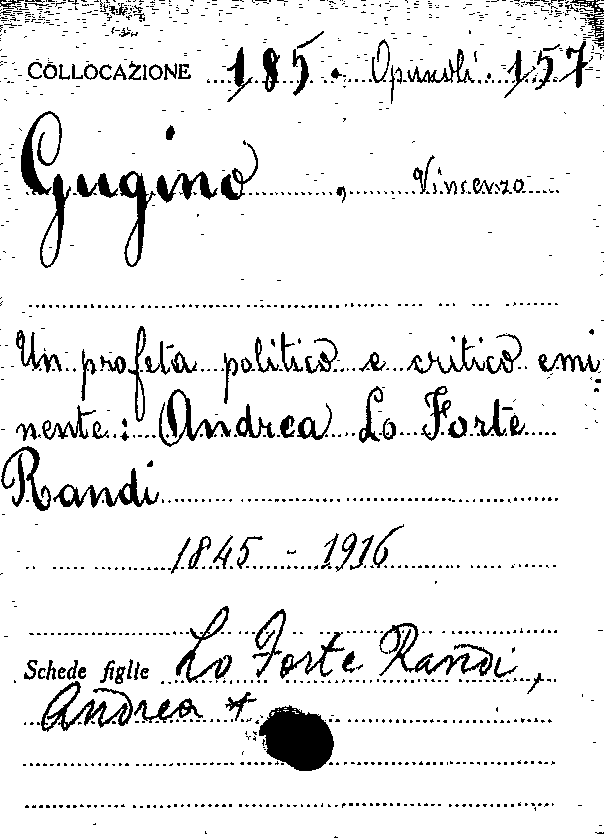 COLLOCAZIONE 185. Opuscoli. 157
Gugino, Vincenzo
Un profeta politico e critico emi:
nente: Andrea Lo Forte
Randi
1845 - 1916
Schede figlie Lo Forte Randi,
Andrea *